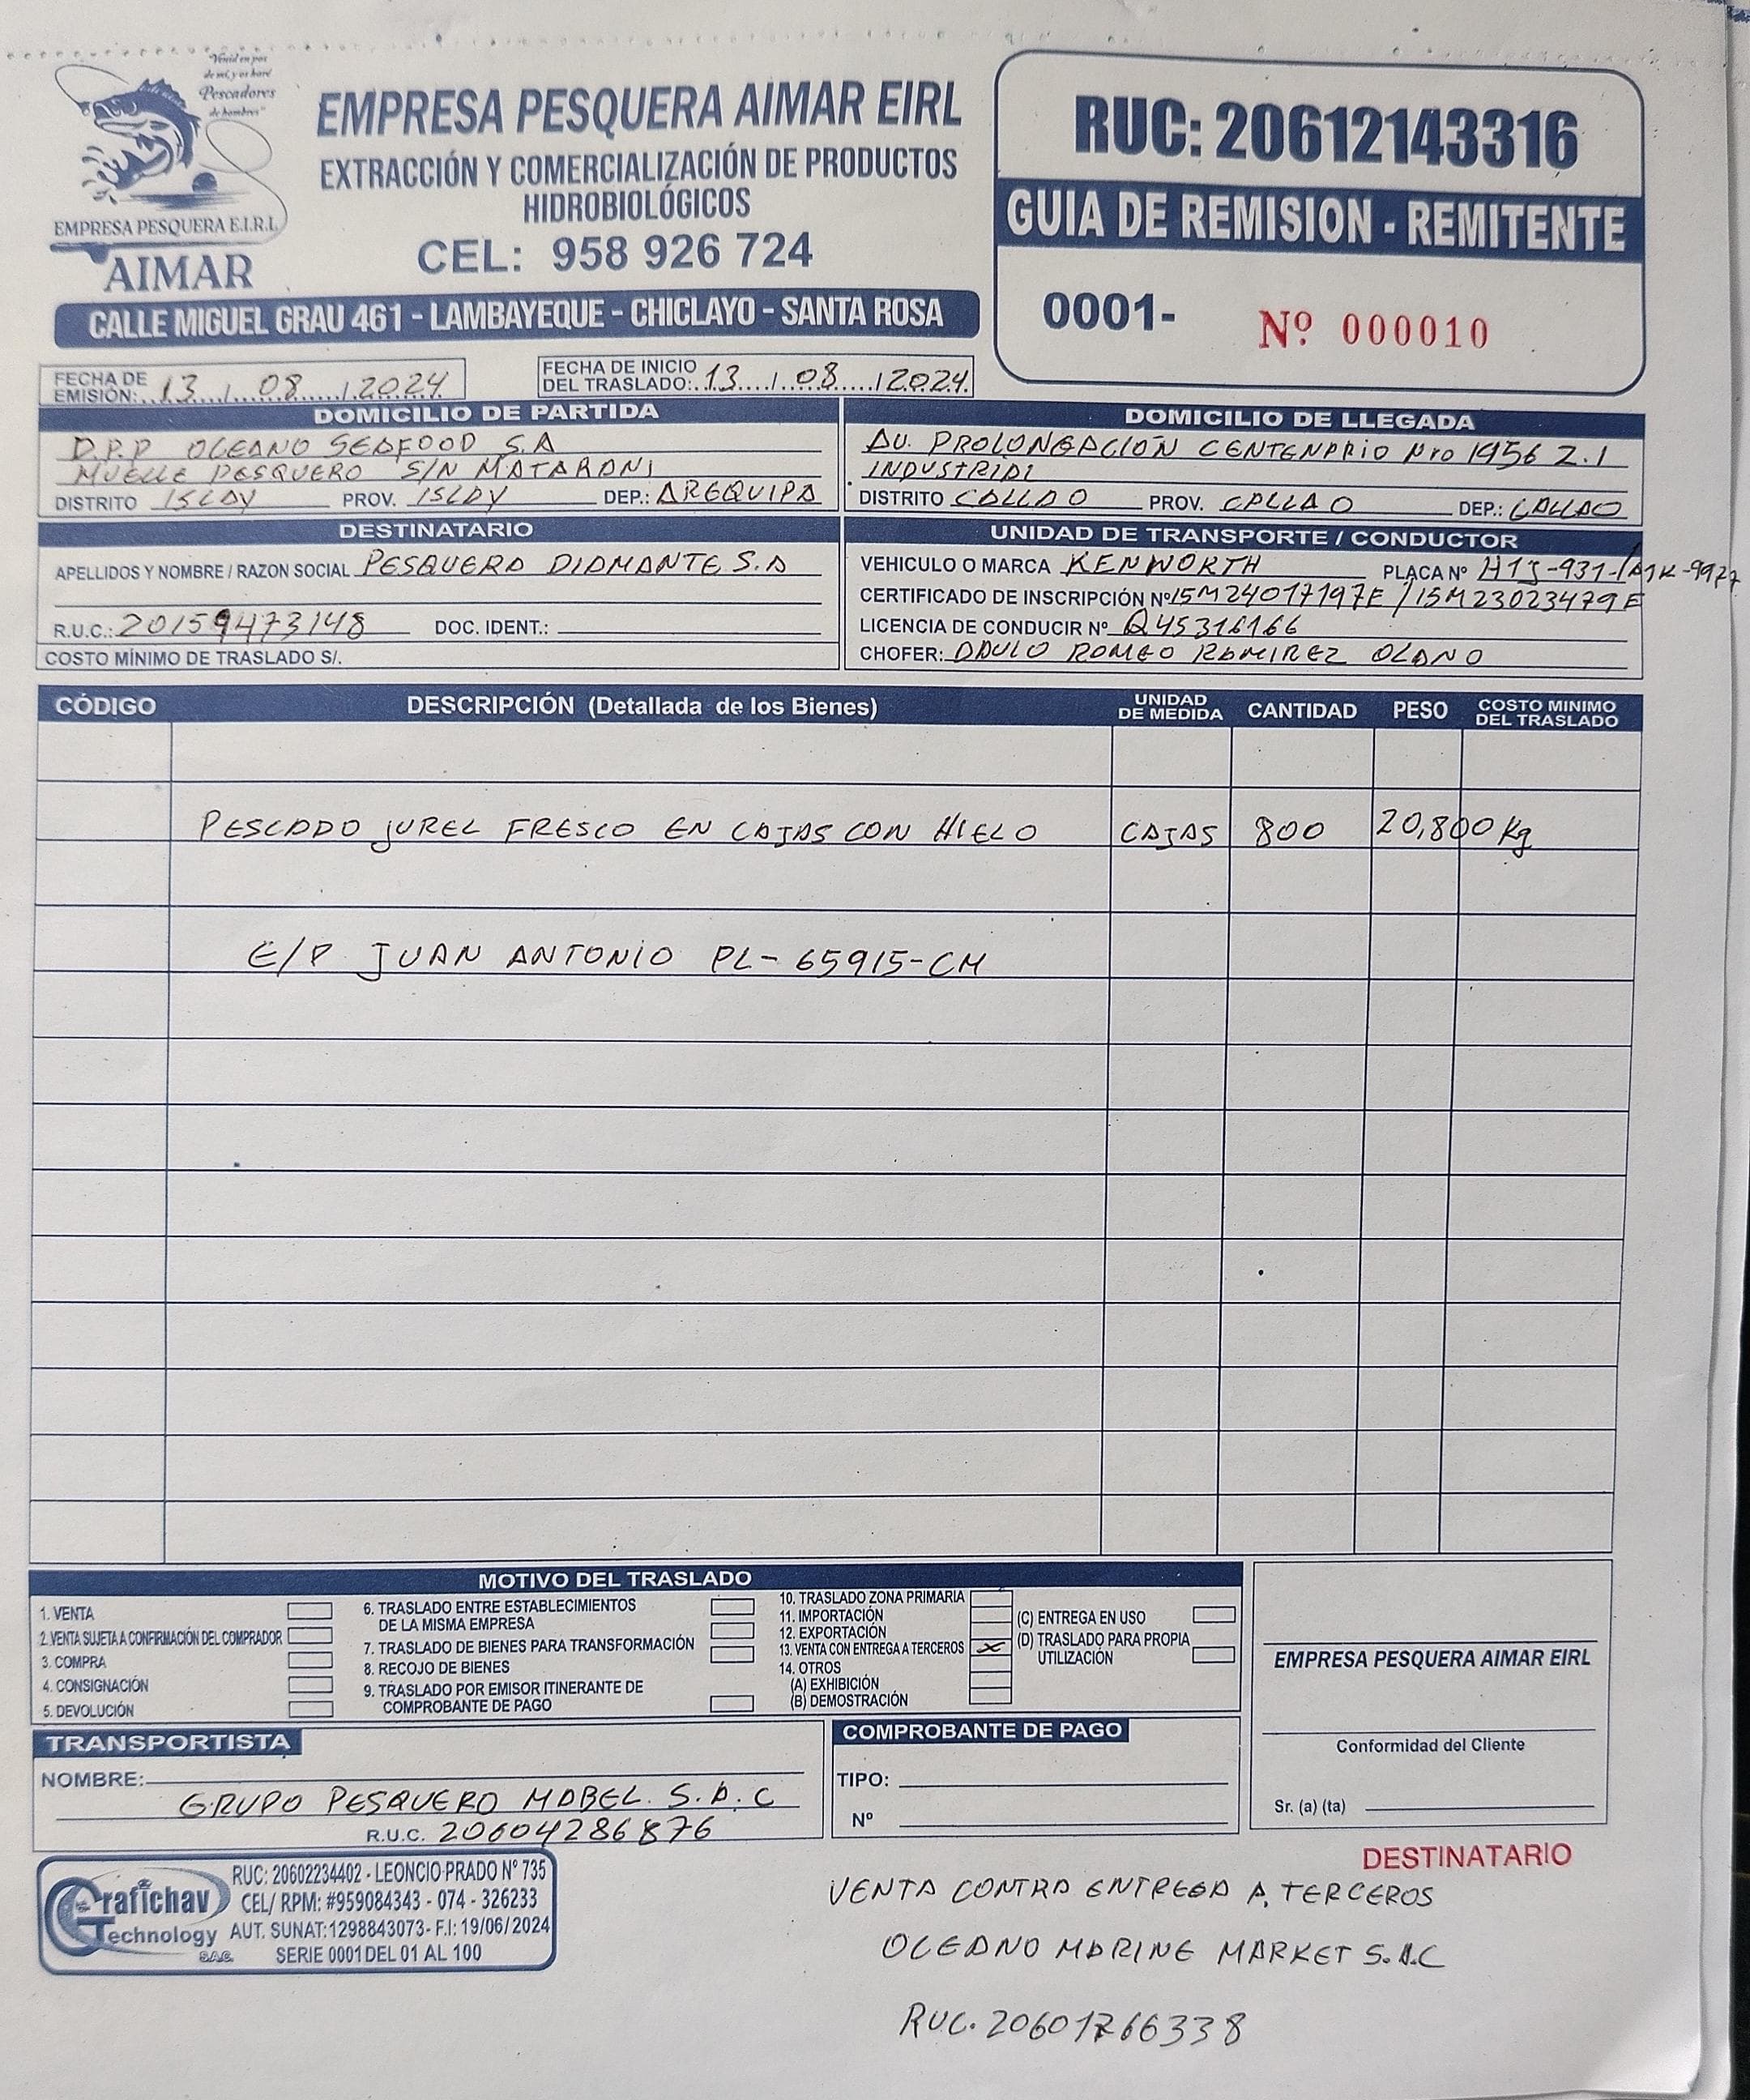 "Venid en pos
de mí, y os haré
Pescadores
de hombres"
EMPRESA PESQUERA E.I.R.L
AIMAR
EMPRESA PESQUERA AIMAR EIRL
EXTRACCIÓN Y COMERCIALIZACIÓN DE PRODUCTOS
HIDROBIOLÓGICOS
CEL: 958 926 724
CALLE MIGUEL GRAU 461 - LAMBAYEQUE - CHICLAYO - SANTA ROSA
RUC: 20612143316
GUIA DE REMISION - REMITENTE
0001- Nº 000010
FECHA DE EMISIÓN: 13 / 08 / 2024
FECHA DE INICIO DEL TRASLADO: 13 / 08 / 2024
DOMICILIO DE PARTIDA
D.P.P OCEANO SEAFOOD S.A
MUELLE PESQUERO S/N MATARANI
DISTRITO ISLAY PROV. ISLAY DEP.: AREQUIPA
DOMICILIO DE LLEGADA
AV. PROLONGACIÓN CENTENARIO Nro 1956 Z.I
INDUSTRIAL
DISTRITO CALLAO PROV. CALLAO DEP.: CALLAO
DESTINATARIO
APELLIDOS Y NOMBRE / RAZON SOCIAL PESQUERA DIAMANTE S.A
R.U.C.: 20159473148 DOC. IDENT.:
COSTO MÍNIMO DE TRASLADO S/.
UNIDAD DE TRANSPORTE / CONDUCTOR
VEHICULO O MARCA KENWORTH PLACA Nº H1J-931-/A1K-9977
CERTIFICADO DE INSCRIPCIÓN Nº 15M24017197E / 15M23023479E
LICENCIA DE CONDUCIR Nº Q45316166
CHOFER: PAULO ROMEO RAMIREZ OLANO
CÓDIGO DESCRIPCIÓN (Detallada de los Bienes) UNIDAD DE MEDIDA CANTIDAD PESO COSTO MINIMO DEL TRASLADO
PESCADO JUREL FRESCO EN CAJAS CON HIELO CAJAS 800 20,800 Kg
E/P JUAN ANTONIO PL-65915-CM
MOTIVO DEL TRASLADO
1. VENTA
2. VENTA SUJETA A CONFIRMACIÓN DEL COMPRADOR
3. COMPRA
4. CONSIGNACIÓN
5. DEVOLUCIÓN
6. TRASLADO ENTRE ESTABLECIMIENTOS
DE LA MISMA EMPRESA
7. TRASLADO DE BIENES PARA TRANSFORMACIÓN
8. RECOJO DE BIENES
9. TRASLADO POR EMISOR ITINERANTE DE
COMPROBANTE DE PAGO
10. TRASLADO ZONA PRIMARIA
11. IMPORTACIÓN
12. EXPORTACIÓN
13. VENTA CON ENTREGA A TERCEROS X
14. OTROS
(A) EXHIBICIÓN
(B) DEMOSTRACIÓN
(C) ENTREGA EN USO
(D) TRASLADO PARA PROPIA
UTILIZACIÓN
EMPRESA PESQUERA AIMAR EIRL
Conformidad del Cliente
Sr. (a) (ta)
TRANSPORTISTA
NOMBRE:
GRUPO PESQUERO MABEL. S.A.C
R.U.C. 20604286876
COMPROBANTE DE PAGO
TIPO:
Nº
Grafichav
Technology
S.A.C.
RUC: 20602234402 - LEONCIO PRADO Nº 735
CEL/ RPM: #959084343 - 074 - 326233
AUT. SUNAT: 1298843073- F.I: 19/06/2024
SERIE 0001 DEL 01 AL 100
DESTINATARIO
VENTA CONTRA ENTREGA A TERCEROS
OCEANO MARINE MARKET S.A.C
RUC. 20601766338